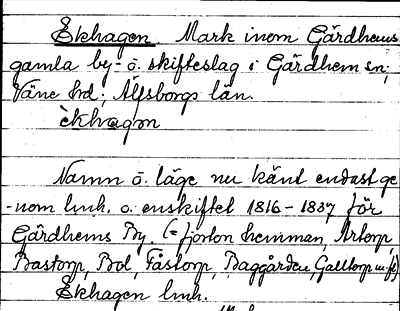 Ekhagen Mark inom Gärdhems
gamla by- o. skifteslag i Gärdhem sn,
Väne hd; Älfsborgs län.
èkhagən
Namn o. läge nu känt endast ge
-nom lmh. o. enskiftet 1816-1837 för
Gärdhems By. (= fjorton hemman, Artorp,
Bastorp, Bol, Fåstorp, Baggården, Galltorp m.fl)
Ekhagen lmh.